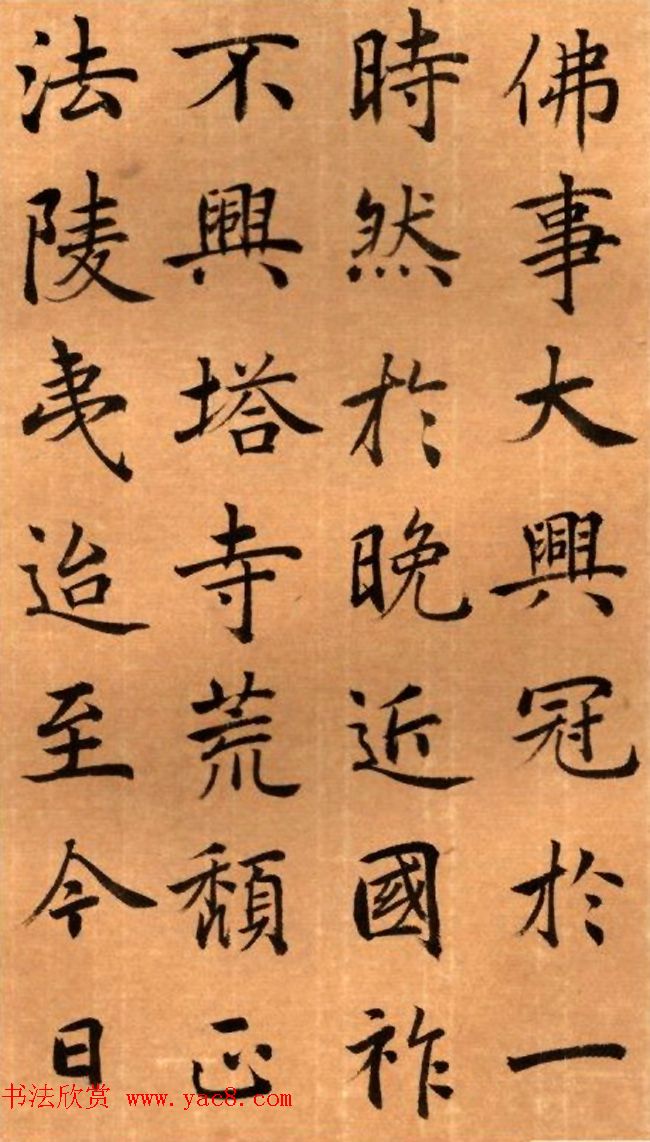 佛事大興冠於一
時然於晚近國祚
不興塔寺荒頹正
法陵夷迨至今日
书法欣赏 www.yac8.com